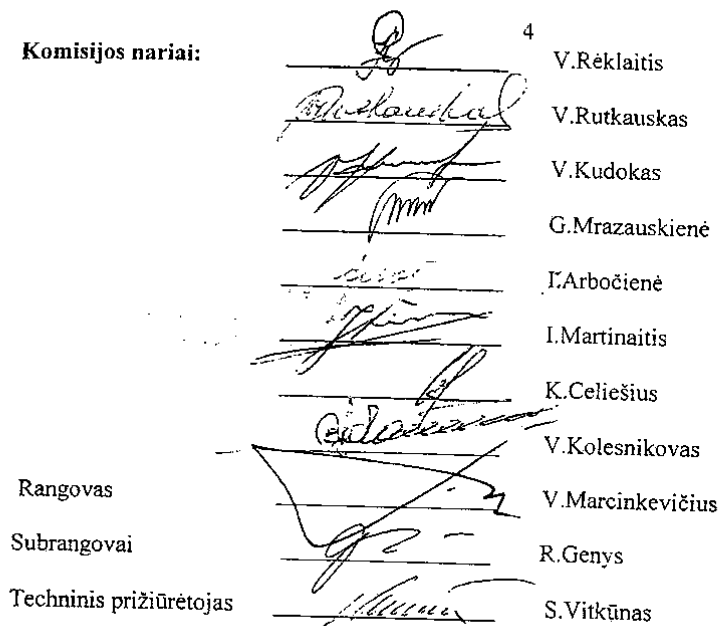 4
Komisijos nariai:
V.Rėklaitis
V.Rutkauskas
V.Kudokas
G.Mrazauskienė
I.Arbočienė
I.Martinaitis
K.Celiešius
V.Kolesnikovas
Rangovas V.Marcinkevičius
Subrangovai R.Genys
Techninis prižiūrėtojas S.Vitkūnas